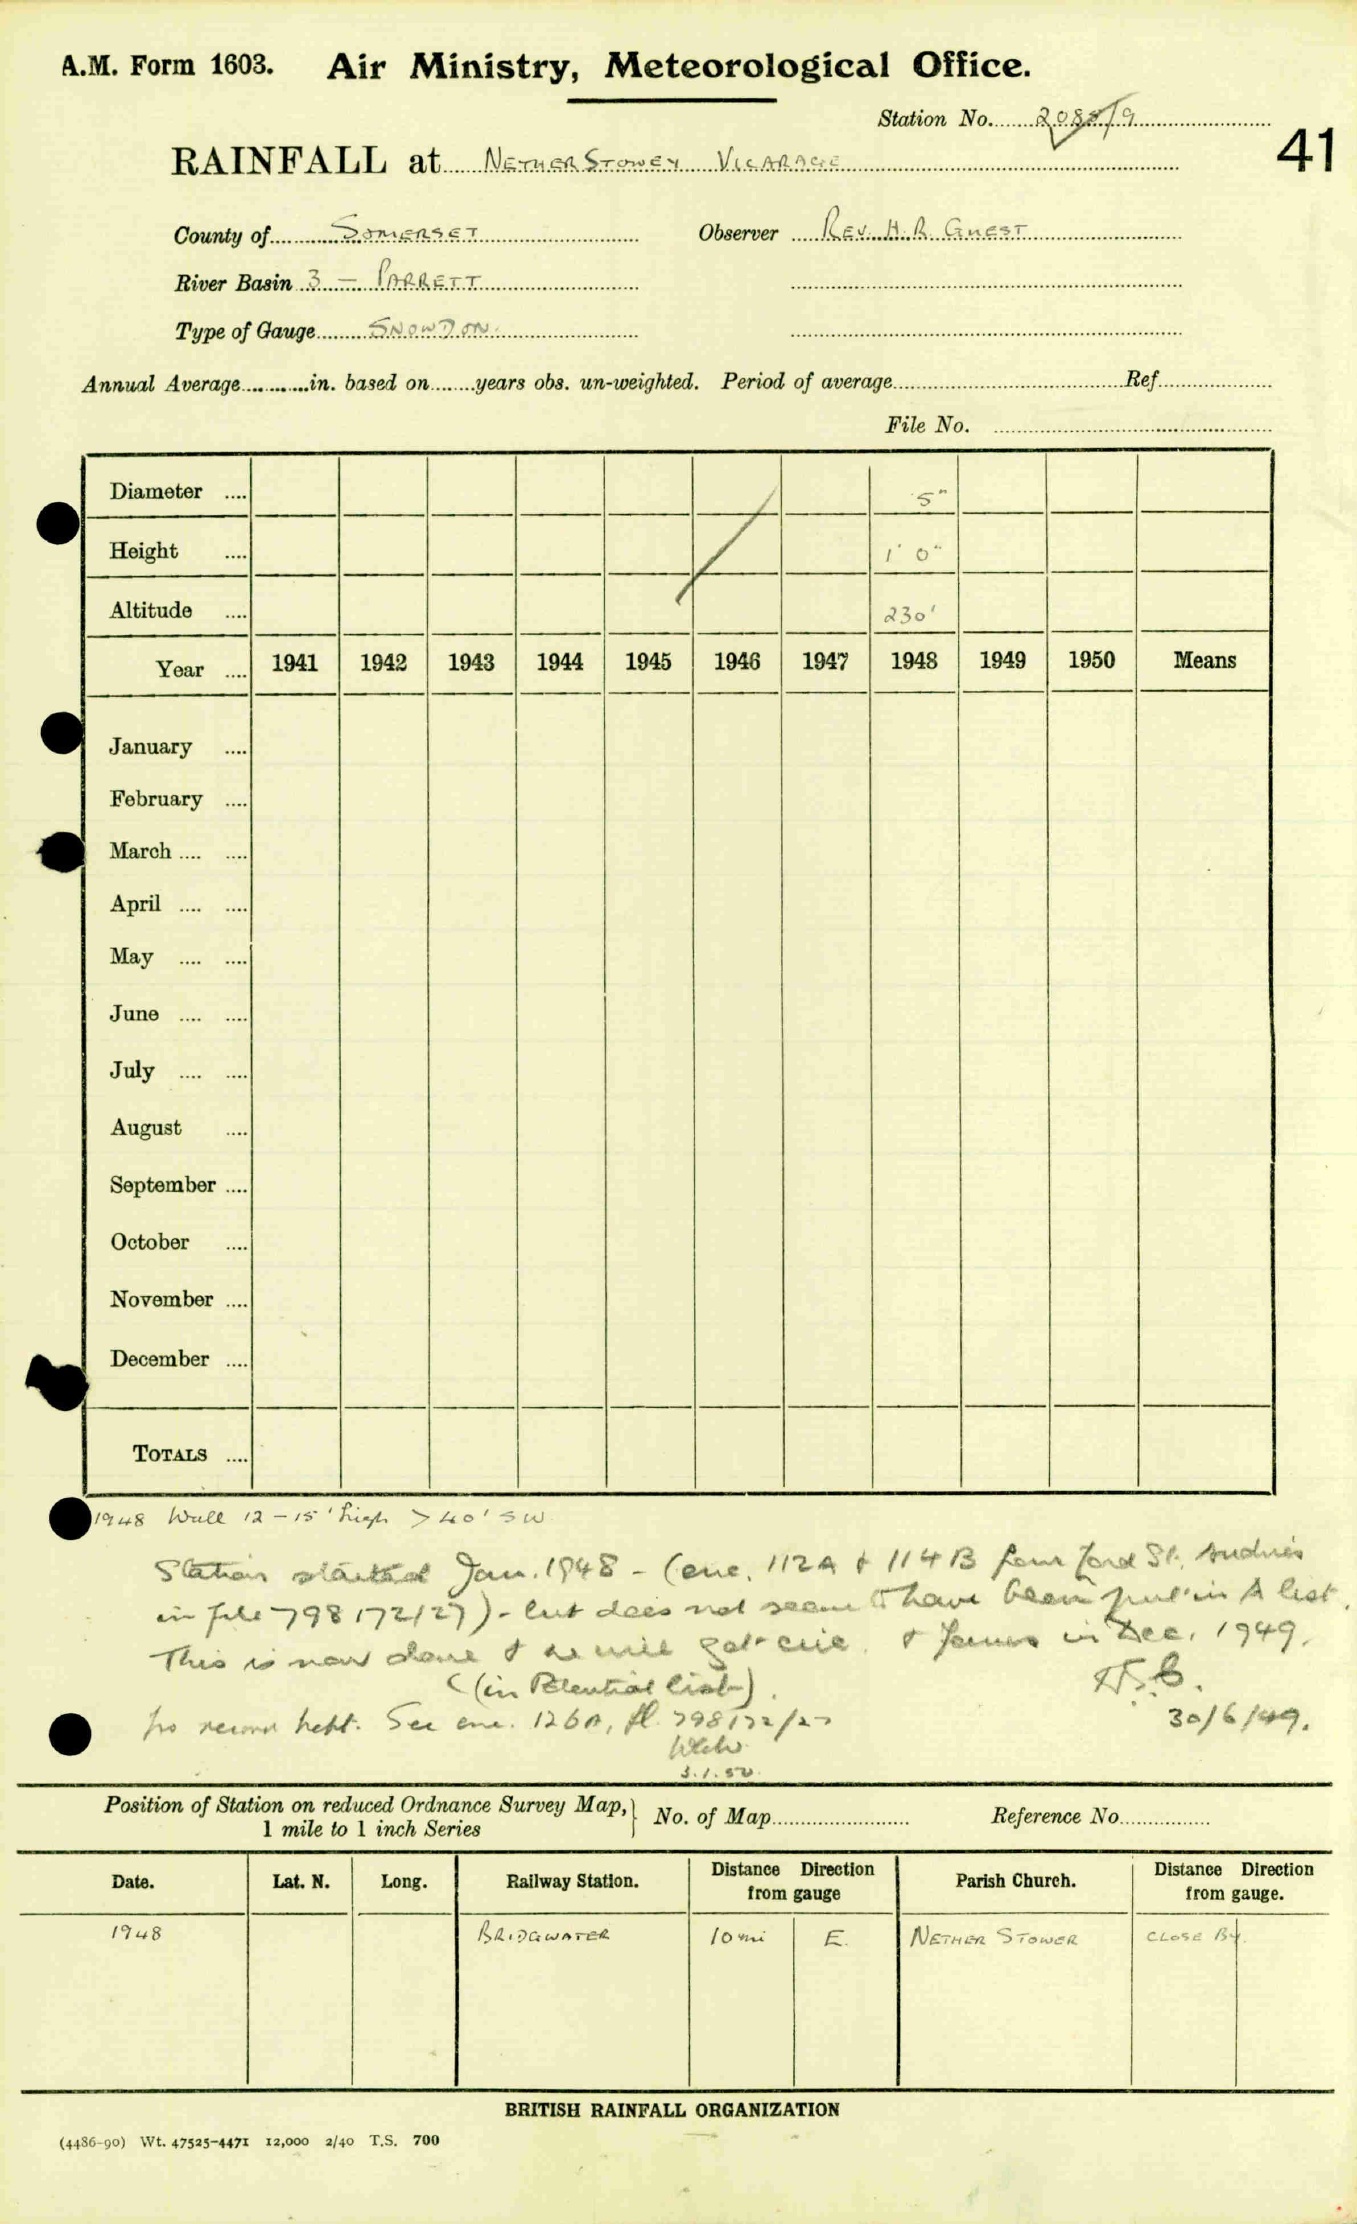 A.M. Form 1603. Air Ministry, Meteorological Office.
Station No. 2088/9
41
RAINFALL at NETHER STOWEY VICARAGE
County of SOMERSET Observer REV. H. R. GUEST
River Basin 3 – PARRETT
Type of Gauge SNOWDON.
Annual Average in. based on years obs. un-weighted. Period of average Ref
File No.
Diameter .... 5"
Height .... 1' 0"
Altitude .... 230'
Year .... 1941 1942 1943 1944 1945 1946 1947 1948 1949 1950 Means
January ....
February ....
March .... ....
April .... ....
May .... ....
June .... ....
July .... ....
August ....
September ....
October ....
November ....
December ....
TOTALS ....
1948 Wall 12 – 15' high > 40' SW
Station started Jan. 1948 – (enc. 112A & 114B from ford St. Andries
in file 798172/27) – but does not seem to have been put in A list.
This is now done & he will get circ. & forms in Dec. 1949.
(in Potential list).
30/6/49.
No record kept. See enc. 126A, fl. 798172/27
3.1.50.
Position of Station on reduced Ordnance Survey Map, } No. of Map Reference No.
1 mile to 1 inch Series
Date. Lat. N. Long. Railway Station. Distance Direction from gauge Parish Church. Distance Direction from gauge.
1948 BRIDGWATER 10 mi E. NETHER STOWER CLOSE BY.
BRITISH RAINFALL ORGANIZATION
(4486-90) Wt. 47525-4471 12,000 2/40 T.S. 700